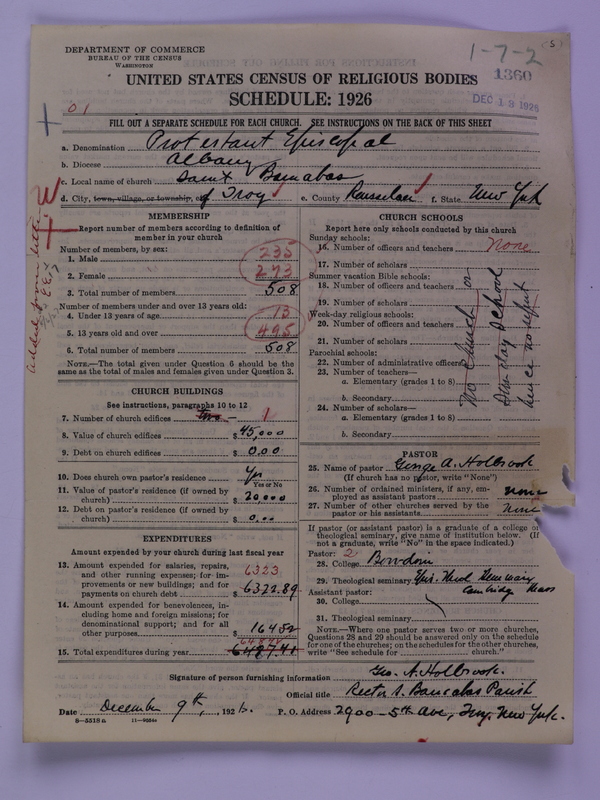 DEPARTMENT OF COMMERCE
BUREAU OF THE CENSUS
WASHINGTON
1-7-2
(5)
1360
DEC 13 1926
UNITED STATES CENSUS OF RELIGIOUS BODIES
SCHEDULE: 1926
01
FILL OUT A SEPARATE SCHEDULE FOR EACH CHURCH. SEE INSTRUCTIONS ON THE BACK OF THIS SHEET
a. Denomination Protestant Episcopal
b. Diocese Albany
c. Local name of church Saint Barnabas
d. City, town, village, or township, of Troy e. County Rensselaer f. State New York
added from letter
MEMBERSHIP
Report number of members according to definition of
member in your church
Number of members, by sex:
1. Male 235
2. Female 273
3. Total number of members 508
Number of members under and over 13 years old:
4. Under 13 years of age 13
5. 13 years old and over 495
6. Total number of members 508
NOTE.—The total given under Question 6 should be the
same as the total of males and females given under Question 3.
CHURCH BUILDINGS
See instructions, paragraphs 10 to 12
7. Number of church edifices 1
8. Value of church edifices $ 45,000
9. Debt on church edifices $ 0.00
10. Does church own pastor's residence Yes
Yes or No
11. Value of pastor's residence (if owned by
church) $ 20,000
12. Debt on pastor's residence (if owned by
church) $ 0.00
EXPENDITURES
Amount expended by your church during last fiscal year
13. Amount expended for salaries, repairs,
and other running expenses; for im-
provements or new buildings; and for
payments on church debt $ 6322.89
6323
14. Amount expended for benevolences, in-
cluding home and foreign missions; for
denominational support; and for all
other purposes $ 164 52
15. Total expenditures during year $ 6487.41
CHURCH SCHOOLS
Report here only schools conducted by this church
Sunday schools:
16. Number of officers and teachers None
17. Number of scholars
Summer vacation Bible schools:
18. Number of officers and teachers
19. Number of scholars
Week-day religious schools:
20. Number of officers and teachers
21. Number of scholars
Parochial schools:
22. Number of administrative officers
23. Number of teachers—
a. Elementary (grades 1 to 8)
b. Secondary
24. Number of scholars—
a. Elementary (grades 1 to 8)
b. Secondary
No Church or
Sunday School
hence no report
PASTOR
25. Name of pastor George A. Holbrook
(If church has no pastor, write "None")
26. Number of ordained ministers, if any, em-
ployed as assistant pastors none
27. Number of other churches served by the
pastor or his assistants none
If pastor (or assistant pastor) is a graduate of a college or
theological seminary, give name of Institution below. (If
not a graduate, write "No" in the space indicated.)
Pastor: 2
28. College Bowdoin
29. Theological seminary Epis. Theol Seminary
Cambridge Mass
Assistant pastor:
30. College
31. Theological seminary
NOTE.—Where one pastor serves two or more churches,
Questions 28 and 29 should be answered only on the schedule
for one of the churches; on the schedules for the other churches,
write "See schedule for church."
Signature of person furnishing information Geo. A. Holbrook.
Official title Rector S. Barnabas Parish
Date December 9th, 1926. P. O. Address 2900-5th Ave, Troy, New York.
8-5518a 11-9056a